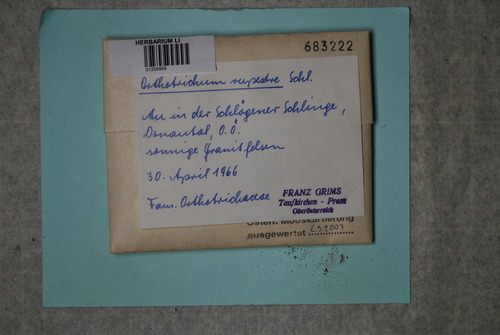 HERBARIUM LI
683222
Orthotrichum rupestre Schl.
Au in der Schlögener Schlinge,
Donautal, O.Ö.
sonnige Granitfelsen
30. April 1966
Fam. Orthotrichaceae
FRANZ GRIMS
Taufkirchen - Pram
Oberösterreich
Österr. Mooskartierung
ausgewertet